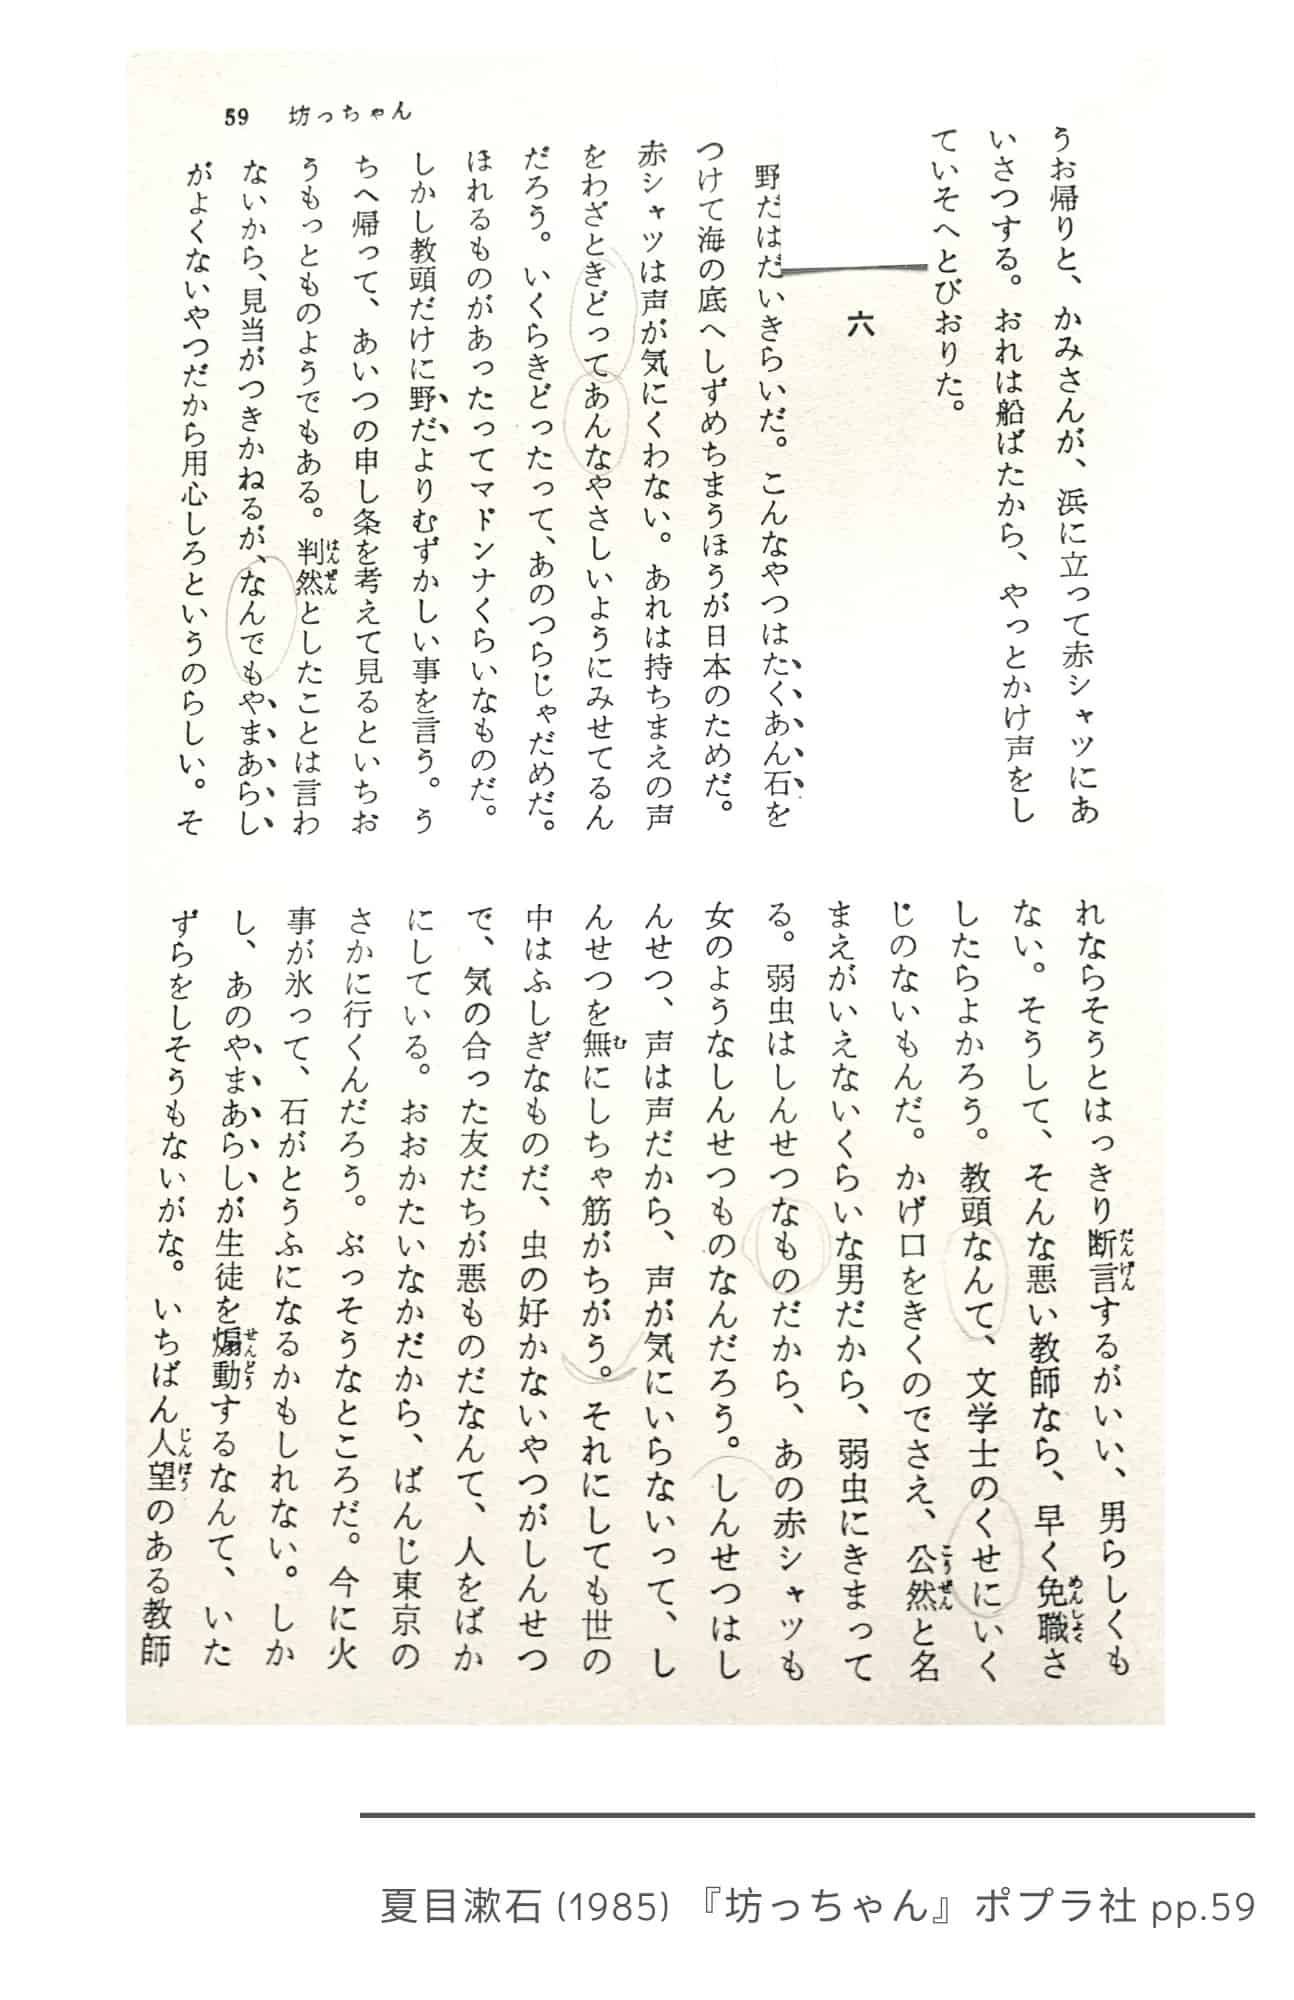 59 坊っちゃん
うお帰りと、かみさんが、浜に立って赤シャツにあ
いさつする。おれは船ばたから、やっとかけ声をし
ていそへとびおりた。
六
野だはだいきらいだ。こんなやつはたくあん石を
つけて海の底へしずめちまうほうが日本のためだ。
赤シャツは声が気にくわない。あれは持ちまえの声
をわざときどってあんなやさしいようにみせてるん
だろう。いくらきどったって、あのつらじゃだめだ。
ほれるものがあったってマドンナくらいなものだ。
しかし教頭だけに野だよりむずかしい事を言う。う
ちへ帰って、あいつの申し条を考えて見るといちお
うもっとものようでもある。判然としたことは言わ
ないから、見当がつきかねるが、なんでもやまあらし
がよくないやつだから用心しろというのらしい。そ
れならそうとはっきり断言するがいい、男らしくも
ない。そうして、そんな悪い教師なら、早く免職さ
したらよかろう。教頭なんて、文学士のくせにいく
じのないもんだ。かげ口をきくのでさえ、公然と名
まえがいえないくらいな男だから、弱虫にきまって
る。弱虫はしんせつなものだから、あの赤シャツも
女のようなしんせつものなんだろう。しんせつはし
んせつ、声は声だから、声が気にいらないって、し
んせつを無にしちゃ筋がちがう。それにしても世の
中はふしぎなものだ、虫の好かないやつがしんせつ
で、気の合った友だちが悪ものだなんて、人をばか
にしている。おおかたいなかだから、ばんじ東京の
さかに行くんだろう。ぶっそうなところだ。今に火
事が氷って、石がとうふになるかもしれない。しか
し、あのやまあらしが生徒を煽動するなんて、いた
ずらをしそうもないがな。いちばん人望のある教師
夏目漱石 (1985) 『坊っちゃん』ポプラ社 pp.59